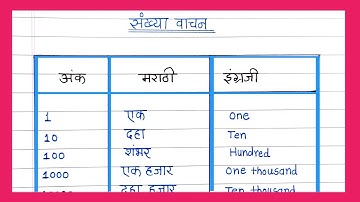 संख्या वाचन
अंक मराठी इंग्रजी
1 एक One
10 दहा Ten
100 शंभर Hundred
1000 एक हजार One thousand
दहा हजार Ten thousand